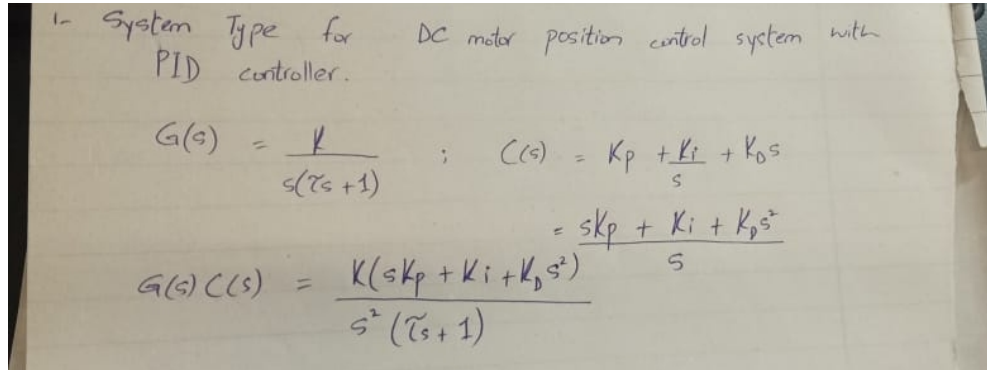 1- System Type for DC motor position control system with
PID controller.
G(s) = K / s(τs + 1) ; C(s) = Kp + Ki / s + KDs
= sKp + Ki + KDs² / s
G(s) C(s) = K(sKp + Ki + KDs²) / s² (τs + 1)